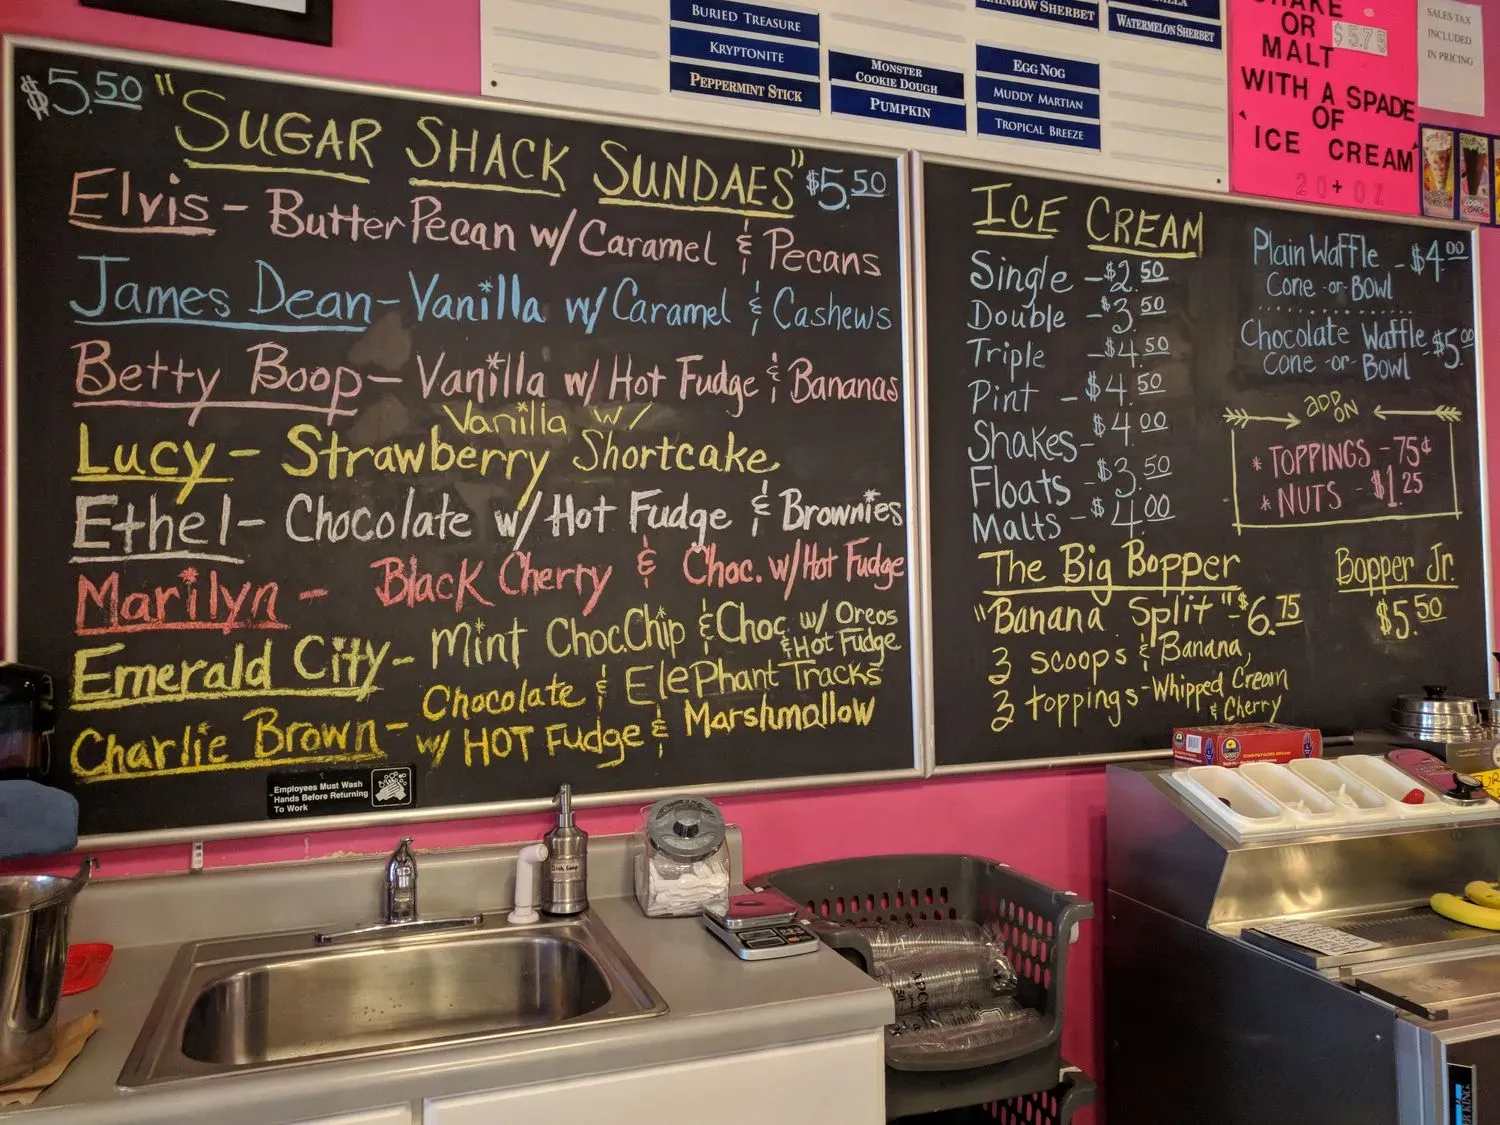 BURIED TREASURE
KRYPTONITE
PEPPERMINT STICK
MONSTER
COOKIE DOUGH
PUMPKIN
RAINBOW SHERBET
EGG NOG
MUDDY MARTIAN
TROPICAL BREEZE
WATERMELON SHERBET
SHAKE
OR
MALT $5.75
WITH A SPADE
OF
ICE CREAM
20+ OZ
SALES TAX
INCLUDED
IN PRICING
$5.50 "SUGAR SHACK SUNDAES" $5.50
Elvis - Butter Pecan w/ Caramel & Pecans
James Dean - Vanilla w/ Caramel & Cashews
Betty Boop - Vanilla w/ Hot Fudge & Bananas
Vanilla w/
Lucy - Strawberry Shortcake
Ethel - Chocolate w/ Hot Fudge & Brownies
Marilyn - Black Cherry & Choc. w/ Hot Fudge
Emerald City - Mint Choc.Chip & Choc. w/ Oreos
& Hot Fudge
Charlie Brown - Chocolate & Elephant Tracks
w/ HOT Fudge & Marshmallow
Employees Must Wash
Hands Before Returning
To Work
ICE CREAM
Single - $2.50
Double - $3.50
Triple - $4.50
Pint - $4.50
Shakes - $4.00
Floats - $3.50
Malts - $4.00
Plain Waffle - $4.00
Cone -or- Bowl
Chocolate Waffle - $5.00
Cone -or- Bowl
ADD ON
* TOPPINGS - 75¢
* NUTS - $1.25
The Big Bopper
"Banana Split" - $6.75
3 scoops & Banana,
3 toppings - Whipped Cream
& Cherry
Bopper Jr.
$5.50